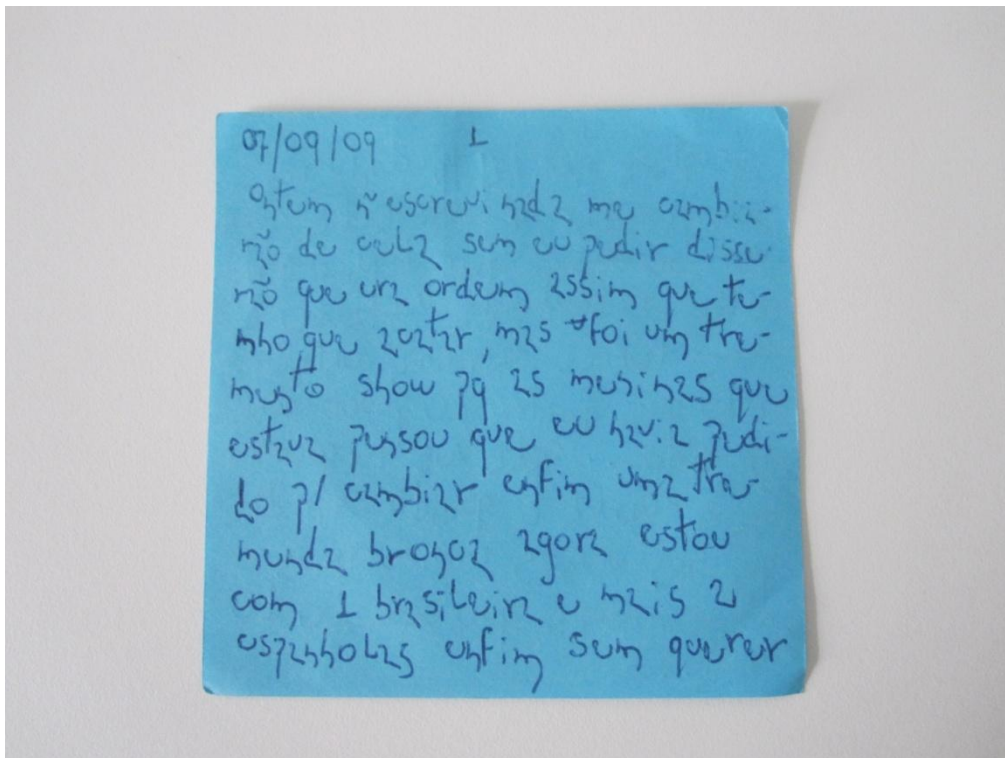 07/09/09 1
Ontem ñ escrevi nada me cambia-
rão de cela sem eu pedir disse-
rão que era ordem assim que te-
nho que acatar, mas foi um tre-
mento show pq as meninas que
estava pensou que eu havia pedi-
do p/ cambiar enfim uma tre-
menda bronca agora estou
com 1 brasileira e mais 2
espanholas enfim sem querer